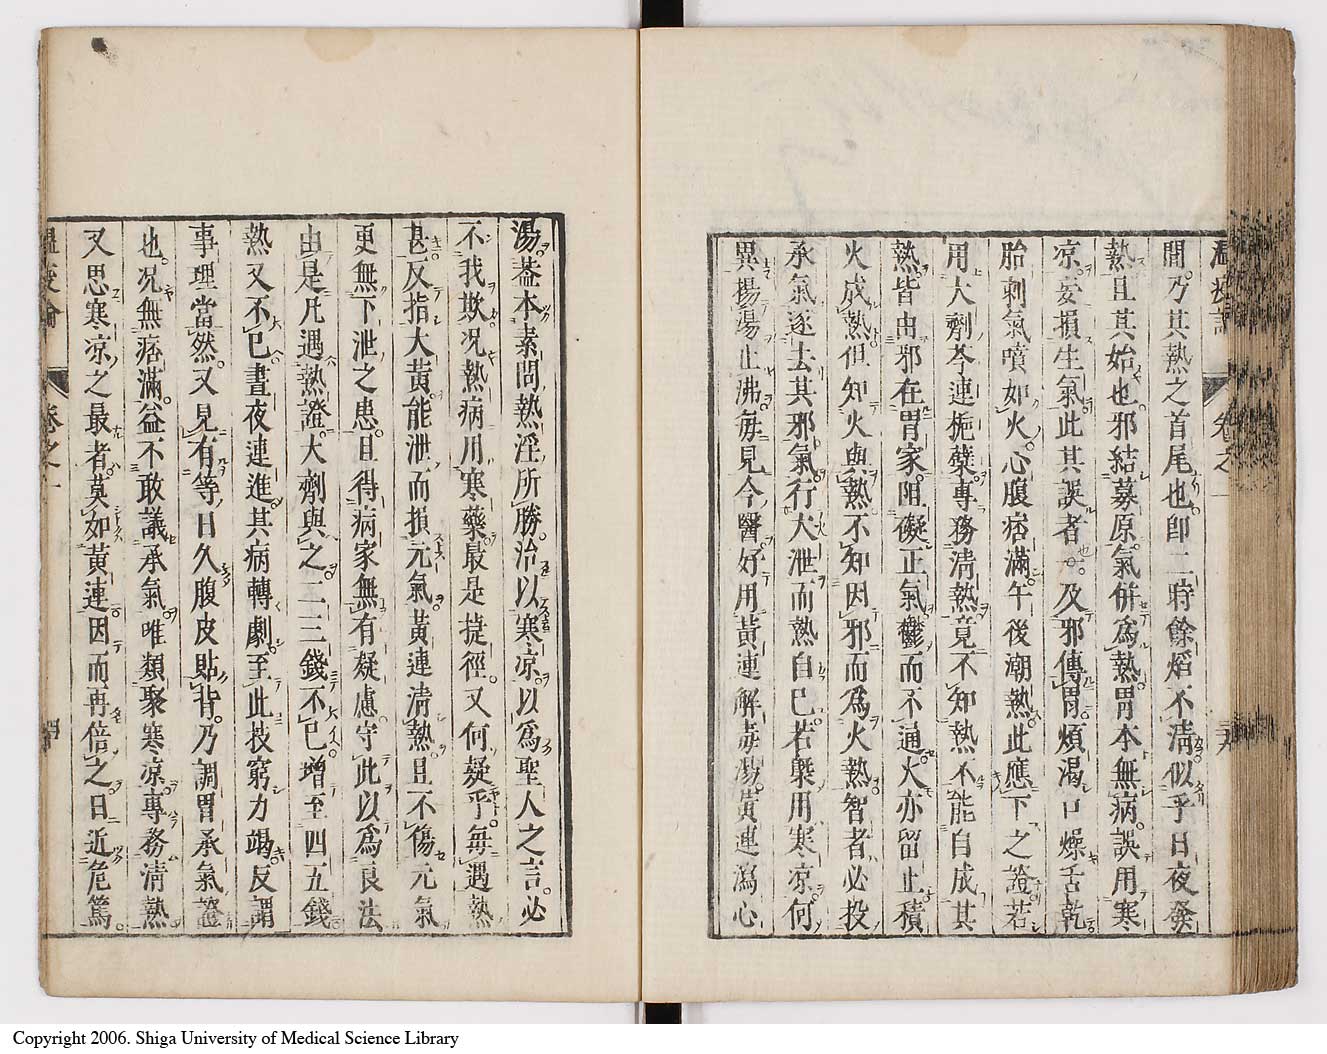 溫疫論 卷之一
間乃其熱之首尾也卽二時餘焰不淸似乎日夜發
熱且其始也邪結募原氣併爲熱胃本無病誤用寒
凉妄損生氣此其誤者一也及邪傳胃煩渴口燥舌乾
胎刺氣噴如火心腹痞滿午後潮熱此應下之證若
用大劑芩連梔蘗專務淸熱竟不知熱不能自成其
熱皆由邪在胃家阻礙正氣鬱而不通火亦留止積
火成熱但知火與熱不知因邪而爲火熱智者必投
承氣逐去其邪氣行火泄而熱自已若槩用寒凉何
異揚湯止沸每見今醫好用黃連解毒湯黃連瀉心
湯葢本素問熱淫所勝治以寒凉以爲聖人之言必
不我欺况熱病用寒藥最是捷徑又何疑乎每遇熱
甚反指大黃能泄而損元氣黃連淸熱且不傷元氣
更無下泄之患且得病家無有疑慮守此以爲良法
由是凡遇熱證大劑與之二三錢不已增至四五錢
熱又不已晝夜連進其病轉劇至此技窮力竭反謂
事理當然又見有等日久腹皮貼背乃調胃承氣證
也况無痞滿益不敢議承氣唯類聚寒凉專務淸熱
又思寒凉之最者莫如黃連因而再倍之日近危篤
溫疫論 卷之一
Copyright 2006. Shiga University of Medical Science Library